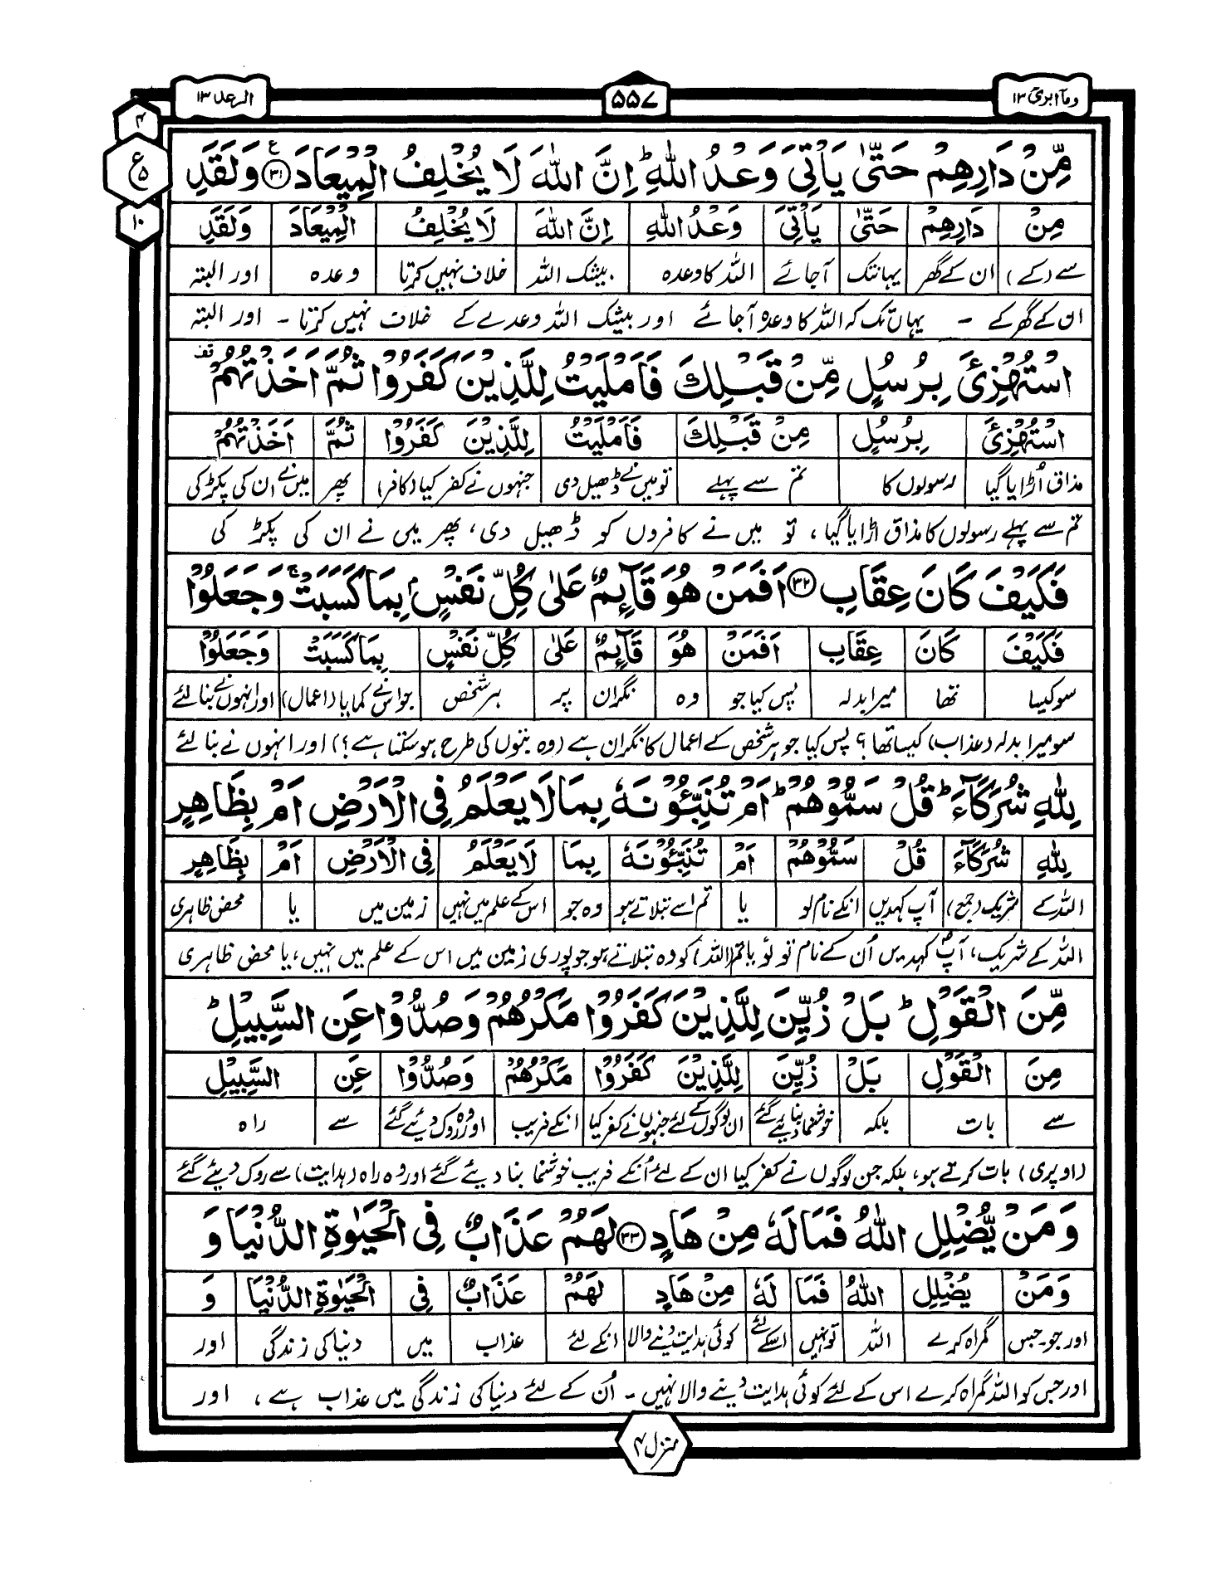 ومآ ابرئ ١٣
٥٥٧
الرعد ١٣
٤
ع
٥
١٠
مِّنْ دَارِهِمْ حَتّٰى يَاْتِيَ وَعْدُ اللّٰهِ ؕ اِنَّ اللّٰهَ لَا يُخْلِفُ الْمِيْعَادَ ﴿٣١﴾ وَلَقَدِ
مِنْ دَارِهِمْ حَتّٰى يَاْتِيَ وَعْدُ اللّٰهِ اِنَّ اللّٰهَ لَا يُخْلِفُ الْمِيْعَادَ وَلَقَدِ
سے (کے) ان کے گھر یہانتک آجائے اللہ کا وعدہ بیشک اللہ خلاف نہیں کرتا وعدہ اور البتہ
ان کے گھر کے ۔ یہاں تک کہ اللہ کا وعدہ آجائے اور بیشک اللہ وعدے کے خلاف نہیں کرتا ۔ اور البتہ
اسْتُهْزِئَ بِرُسُلٍ مِّنْ قَبْلِكَ فَاَمْلَيْتُ لِلَّذِيْنَ كَفَرُوْا ثُمَّ اَخَذْتُهُمْ قف
اسْتُهْزِئَ بِرُسُلٍ مِنْ قَبْلِكَ فَاَمْلَيْتُ لِلَّذِيْنَ كَفَرُوْا ثُمَّ اَخَذْتُهُمْ
مذاق اُڑایا گیا رسولوں کا تم سے پہلے تو میں نے ڈھیل دی جنہوں نے کفر کیا (کافر) پھر میں نے ان کی پکڑ کی
تم سے پہلے رسولوں کا مذاق اڑایا گیا ، تو میں نے کافروں کو ڈھیل دی ، پھر میں نے ان کی پکڑ کی
فَكَيْفَ كَانَ عِقَابِ ﴿٣٢﴾ اَفَمَنْ هُوَ قَآئِمٌ عَلٰى كُلِّ نَفْسٍۭ بِمَا كَسَبَتْ ۚ وَجَعَلُوْا
فَكَيْفَ كَانَ عِقَابِ اَفَمَنْ هُوَ قَآئِمٌ عَلٰى كُلِّ نَفْسٍ بِمَا كَسَبَتْ وَجَعَلُوْا
سو کیسا تھا میرا بدلہ پس کیا جو وہ نگران پر ہر شخص جو اس نے کمایا (اعمال) اور انہوں نے بنالئے
سو میرا بدلہ (عذاب) کیسا تھا ؟ پس کیا جو ہر شخص کے اعمال کا نگران ہے (وہ بتوں کی طرح ہو سکتا ہے ؟) اور انہوں نے بنا لئے
لِلّٰهِ شُرَكَآءَ ؕ قُلْ سَمُّوْهُمْ ؕ اَمْ تُنَبِّـُٔوْنَهٗ بِمَا لَا يَعْلَمُ فِي الْاَرْضِ اَمْ بِظَاهِرٍ
لِلّٰهِ شُرَكَآءَ قُلْ سَمُّوْهُمْ اَمْ تُنَبِّـُٔوْنَهٗ بِمَا لَا يَعْلَمُ فِي الْاَرْضِ اَمْ بِظَاهِرٍ
اللہ کے شریک (جمع) آپ کہدیں انکے نام لو یا تم اسے بتلاتے ہو وہ جو اس کے علم میں نہیں زمین میں یا محض ظاہری
اللہ کے شریک، آپ کہدیں اُن کے نام تو لو یا تم (اللہ) کو وہ بتلاتے ہو جو پوری زمین میں اس کے علم میں نہیں، یا محض ظاہری
مِّنَ الْقَوْلِ ؕ بَلْ زُيِّنَ لِلَّذِيْنَ كَفَرُوْا مَكْرُهُمْ وَصُدُّوْا عَنِ السَّبِيْلِ ؕ
مِنَ الْقَوْلِ بَلْ زُيِّنَ لِلَّذِيْنَ كَفَرُوْا مَكْرُهُمْ وَصُدُّوْا عَنِ السَّبِيْلِ
سے بات بلکہ خوشنما بنا دیے گئے ان لوگوں کے لئے جنہوں نے کفر کیا انکے فریب اور وہ روک دیئے گئے سے راہ
(اوپری) بات کرتے ہو، بلکہ جن لوگوں نے کفر کیا ان کے لئے اُنکے فریب خوشنما بنا دیئے گئے اور وہ راہ (ہدایت) سے روک دیئے گئے
وَمَنْ يُّضْلِلِ اللّٰهُ فَمَا لَهٗ مِنْ هَادٍ ﴿٣٣﴾ لَهُمْ عَذَابٌ فِي الْحَيٰوةِ الدُّنْيَا وَ
وَمَنْ يُضْلِلِ اللّٰهُ فَمَا لَهٗ مِنْ هَادٍ لَهُمْ عَذَابٌ فِي الْحَيٰوةِ الدُّنْيَا وَ
اور جو۔جس گمراہ کرے اللہ تو نہیں اسکے لئے کوئی ہدایت دینے والا انکے لئے عذاب میں دنیا کی زندگی اور
اور جس کو اللہ گمراہ کرے اس کے لئے کوئی ہدایت دینے والا نہیں ۔ اُن کے لئے دنیا کی زندگی میں عذاب ہے ، اور
منزل ٤